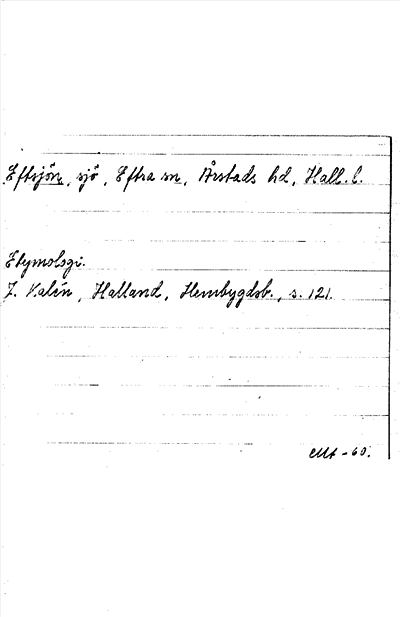 Eftsjön, sjö, Eftra sn, Årstads hd, Hall. l.
Etymologi.
J. Kalén, Halland, Hembygdsb., s. 121.
-60.